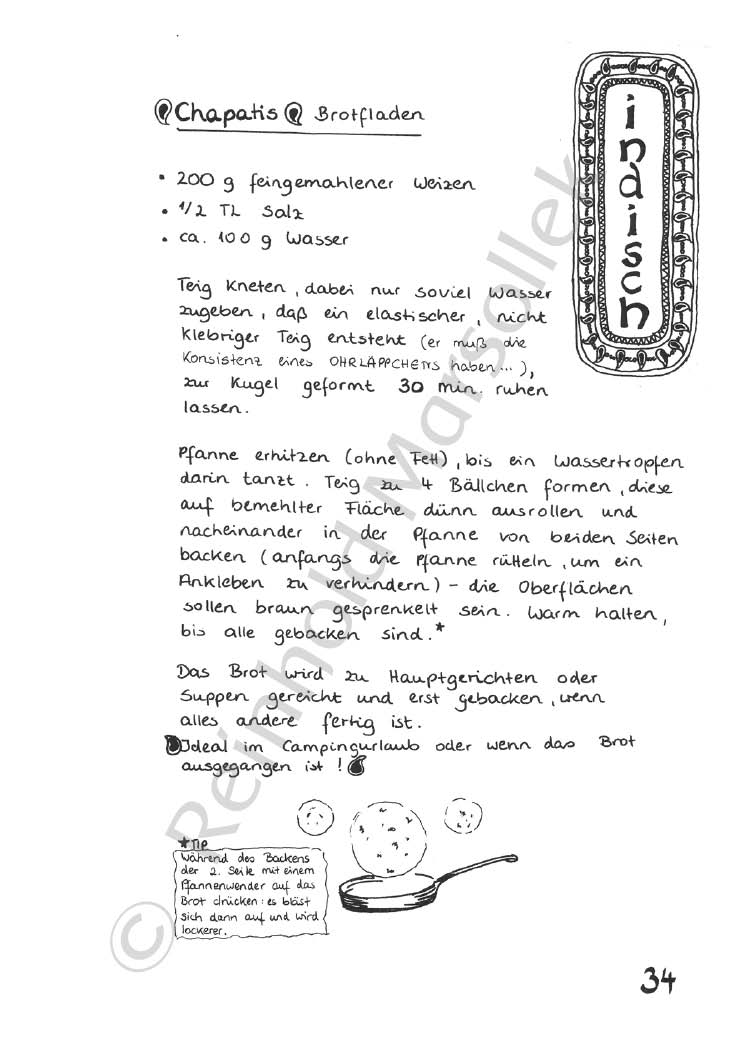 Chapatis Brotfladen
indisch
• 200 g feingemahlener Weizen
• 1/2 TL Salz
• ca. 100 g Wasser
Teig kneten, dabei nur soviel Wasser
zugeben, daß ein elastischer, nicht
klebriger Teig entsteht (er muß die
Konsistenz eines OHRLÄPPCHENS haben...),
zur Kugel geformt 30 min. ruhen
lassen.
Pfanne erhitzen (ohne Fett), bis ein Wassertropfen
darin tanzt. Teig zu 4 Bällchen formen, diese
auf bemehlter Fläche dünn ausrollen und
nacheinander in der Pfanne von beiden Seiten
backen (anfangs die Pfanne rütteln, um ein
Ankleben zu verhindern) - die Oberflächen
sollen braun gesprenkelt sein. Warm halten,
bis alle gebacken sind.*
Das Brot wird zu Hauptgerichten oder
Suppen gereicht und erst gebacken, wenn
alles andere fertig ist.
Ideal im Campingurlaub oder wenn das Brot
ausgegangen ist !
★TIP
Während des Backens
der 2. Seite mit einem
Pfannenwender auf das
Brot drücken: es bläst
sich dann auf und wird
lockerer.
34
© Reinhold Marsollek